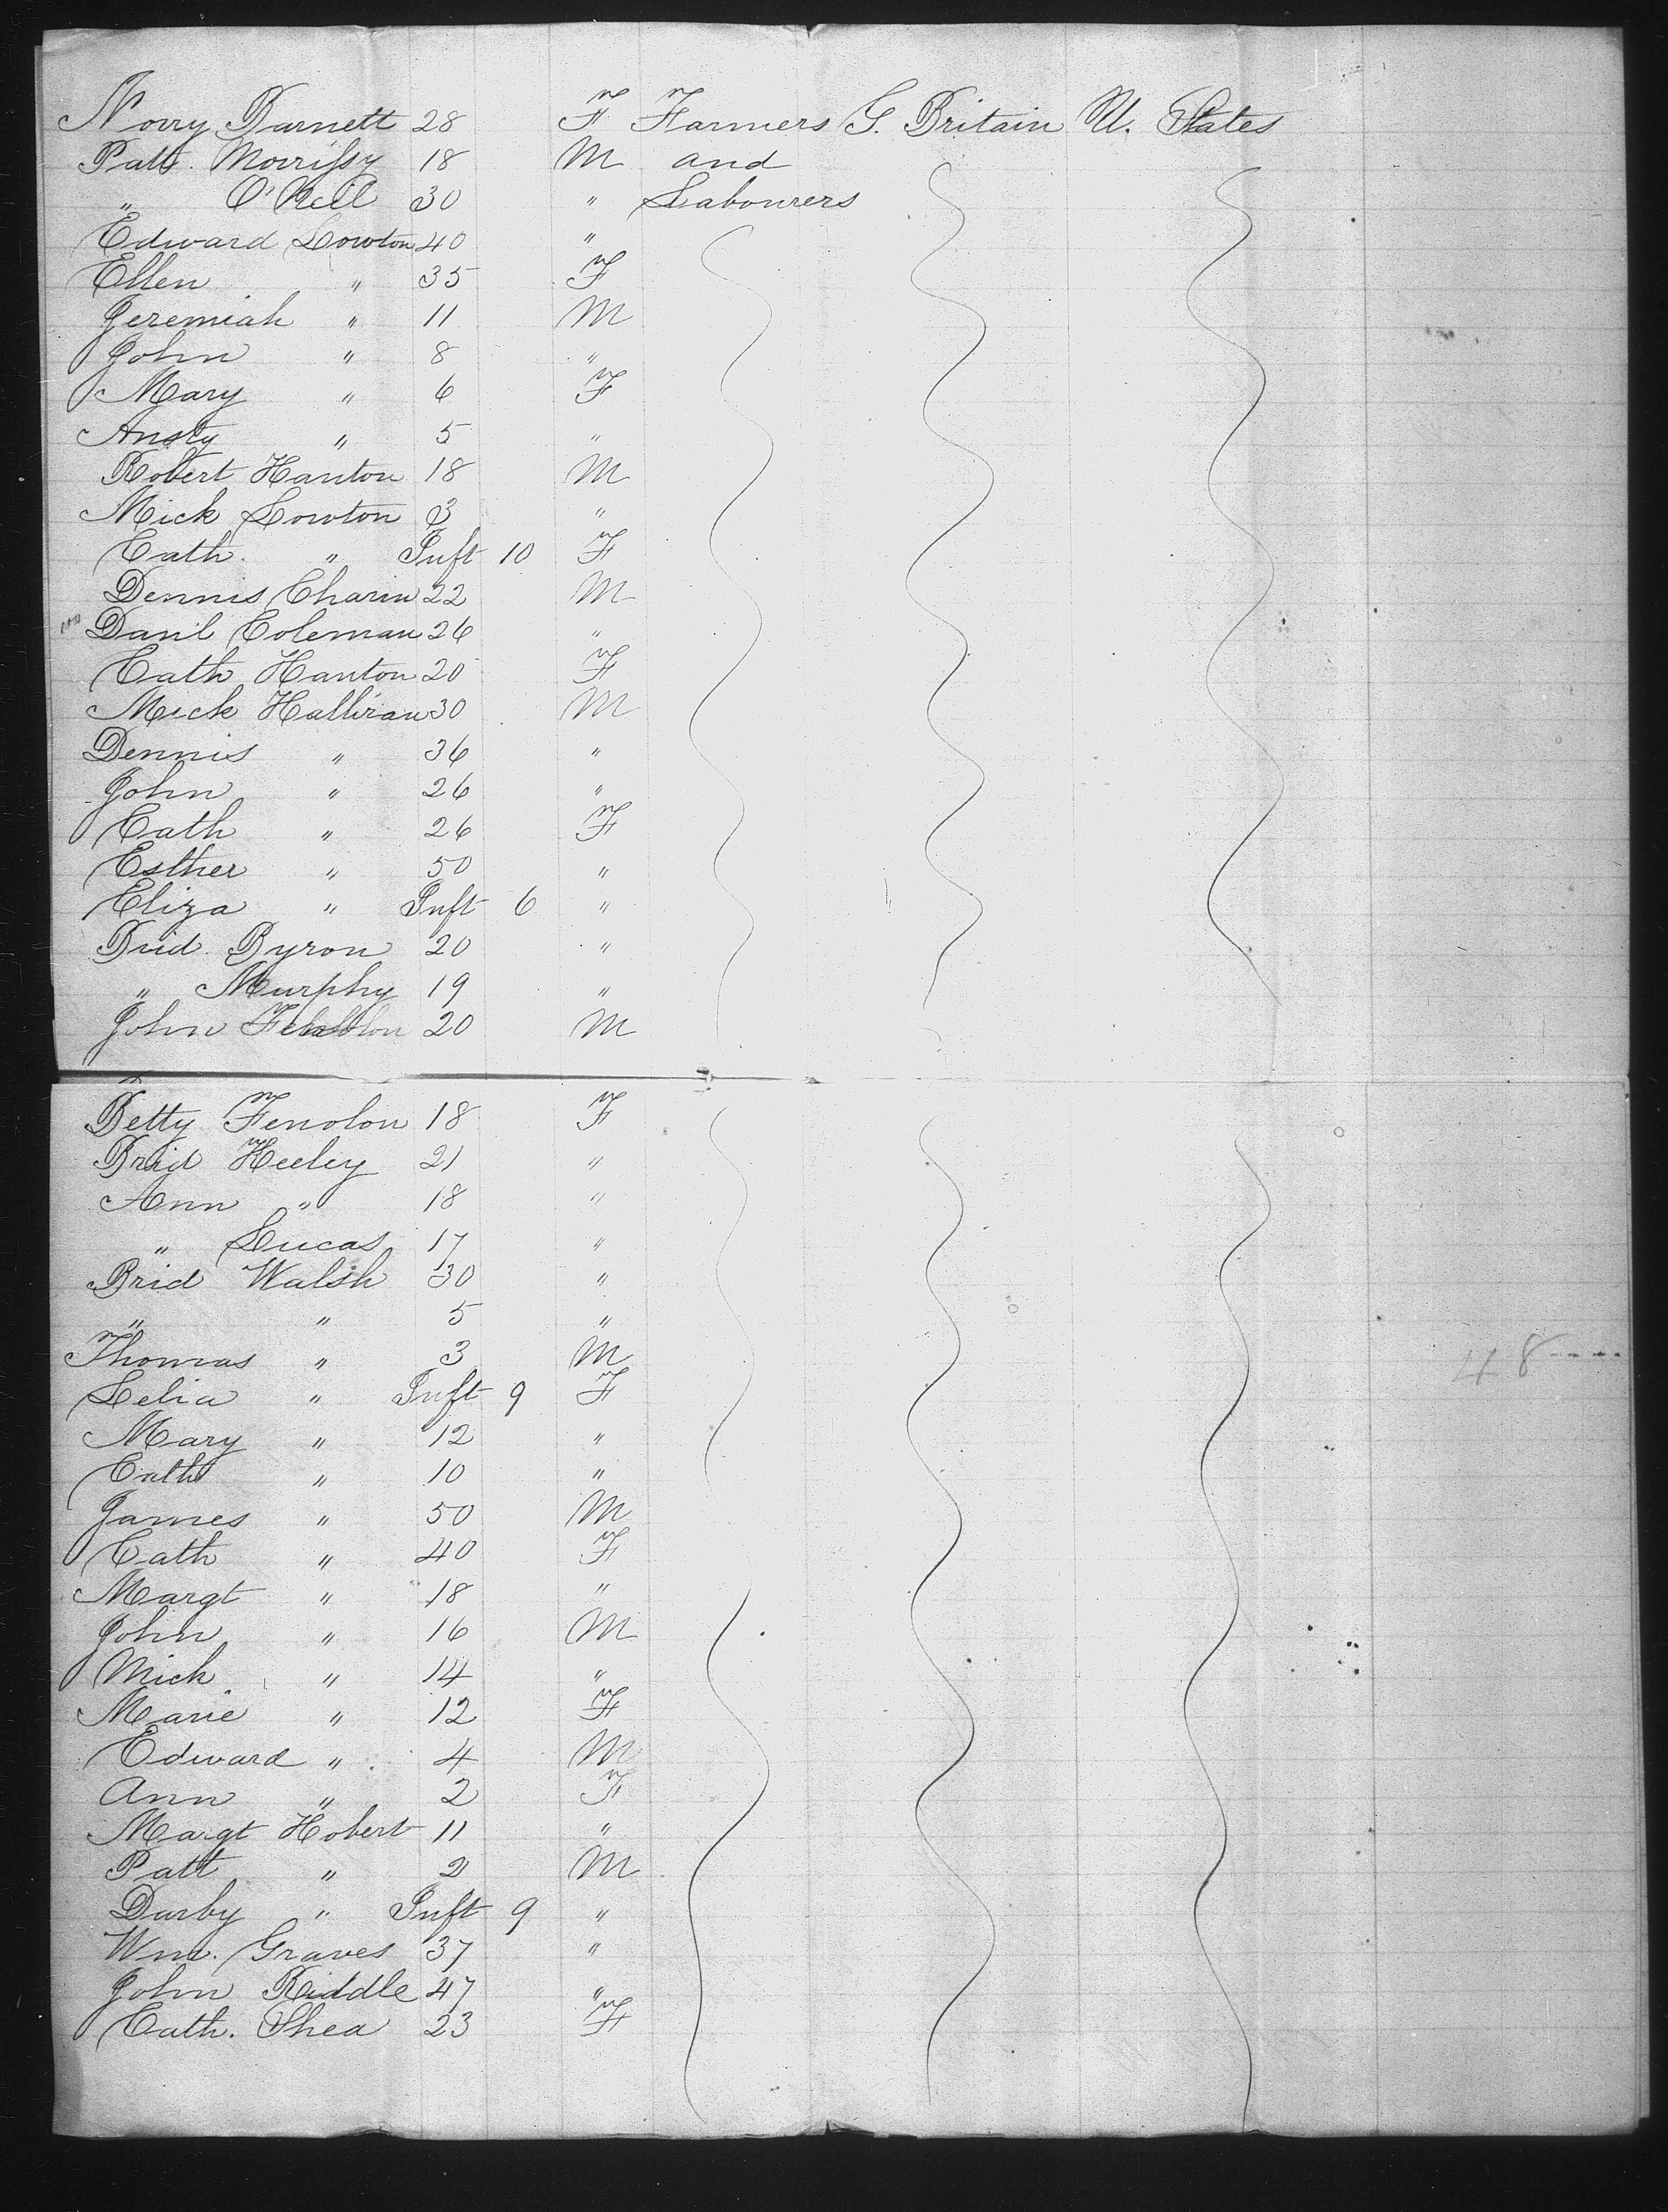 Norry Barnett 28 F Farmers G. Britain U. States
Patt. Morrissy 18 M and
" O'Neil 30 " Labourers
Edward Lowton 40 "
Ellen " 35 F
Jeremiah " 11 M
John " 8 "
Mary " 6 F
Ansty " 5 "
Robert Hanton 18 M
Mick Lowton 3 "
Cath. " Inft 10 F
Dennis Charin 22 M
Danl Coleman 26 "
Cath Hanton 20 F
Mick Halliran 30 M
Dennis " 36 "
John " 26 "
Cath " 26 F
Esther " 50 "
Eliza " Inft 6 "
Brid. Byron 20 "
" Murphy 19 "
John 20 M
Betty Fenolon 18 F
Brid Heeley 21 "
Ann " 18 "
" Lucas 17 "
Brid Walsh 30 "
" " 5 "
Thomas " 3 M
Celia " Inft 9 F
Mary " 12 "
Cath " 10 "
James " 50 M
Cath " 40 F
Margt " 18 "
John " 16 M
Mick " 14 "
Marie " 12 F
Edward " 4 M
Ann " 2 F
Margt Hobert 11 "
Patt " 2 M
Darby " Inft 9 "
Wm. Graves 37 "
John Riddle 47 "
Cath. Shea 23 F
48